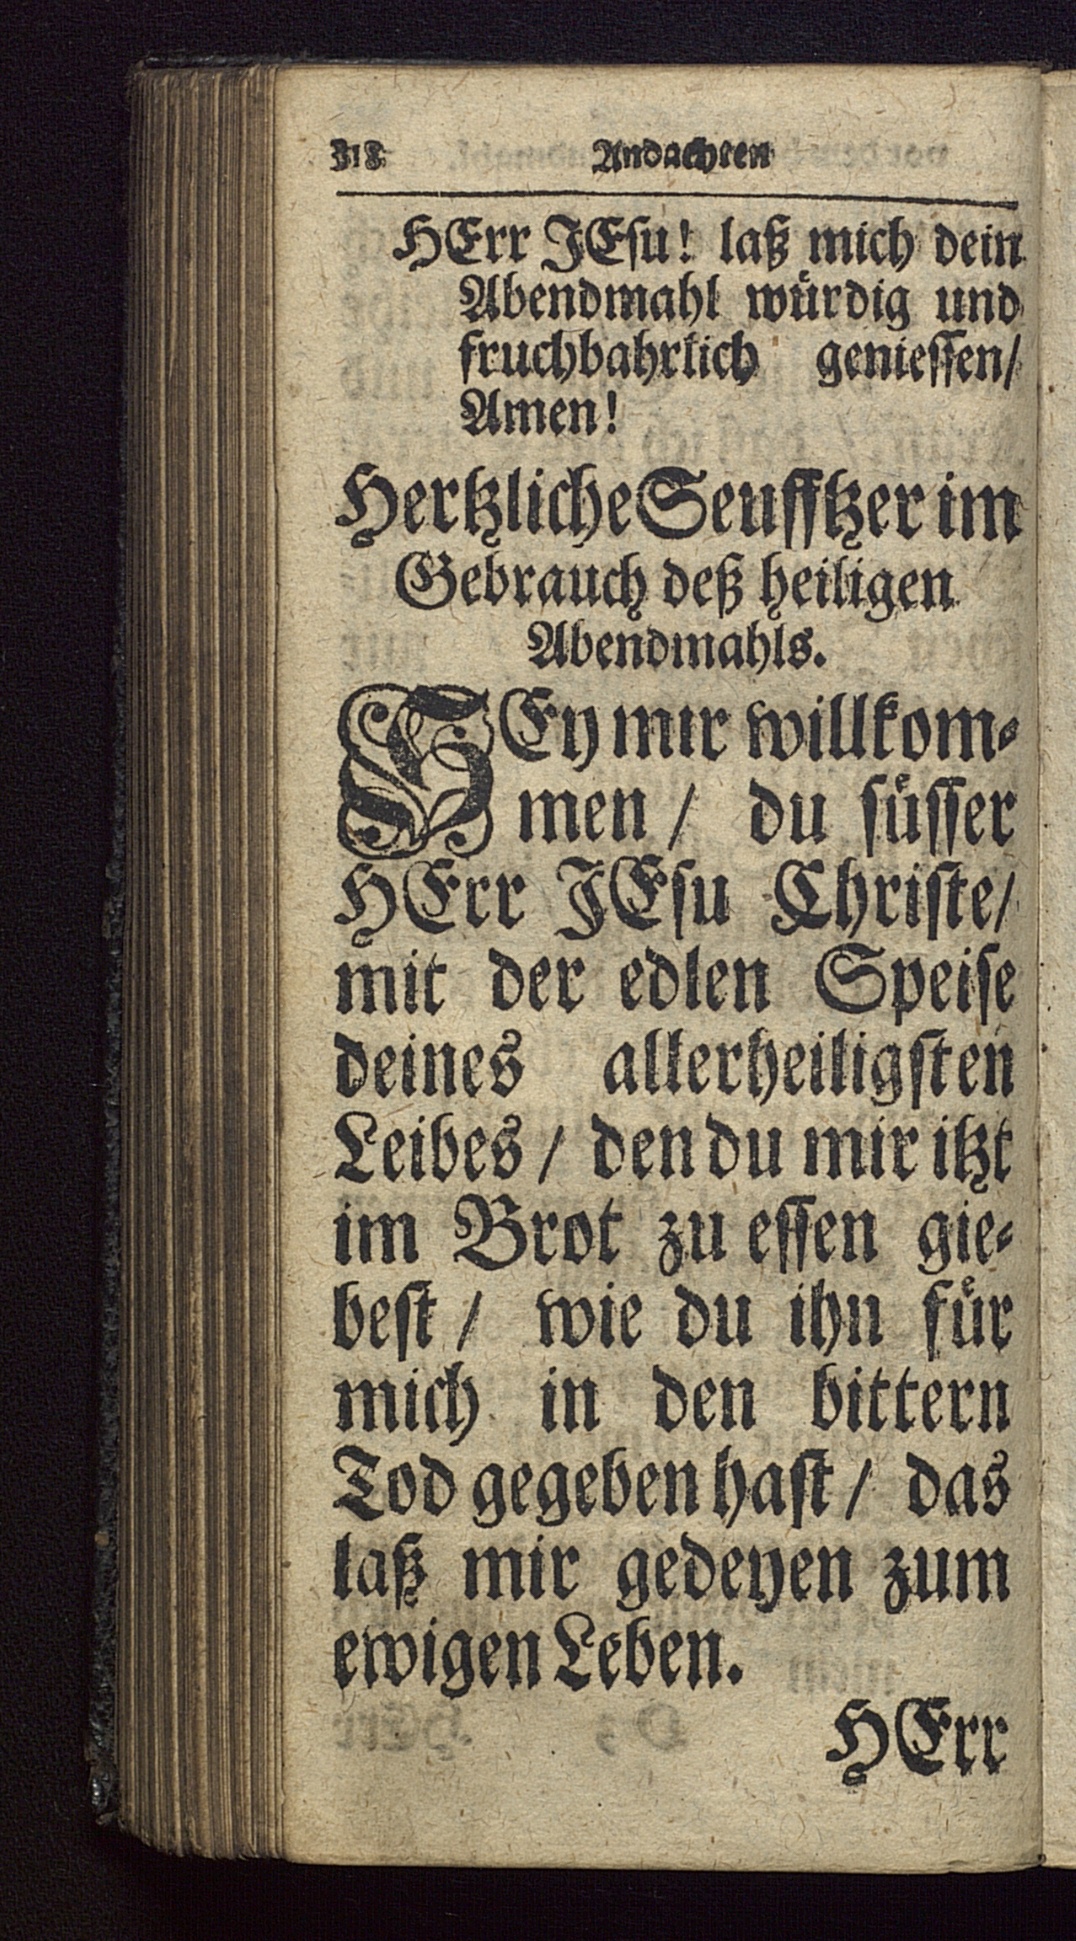 318 Andachten
HErr JEſu! laß mich dein
Abendmahl wuͤrdig und
fruchbahrlich genieſſen/
Amen!
Hertzliche Seufftzer im
Gebrauch deß heiligen
Abendmahls.
SEy mir willkom⸗
men / du ſuͤſſer
HErr JEſu Chriſte/
mit der edlen Speiſe
deines allerheiligſten
Leibes / den du mir itzt
im Brot zu eſſen gie⸗
beſt / wie du ihn fuͤr
mich in den bittern
Tod gegeben haſt / das
laß mir gedeyen zum
ewigen Leben.
HErr